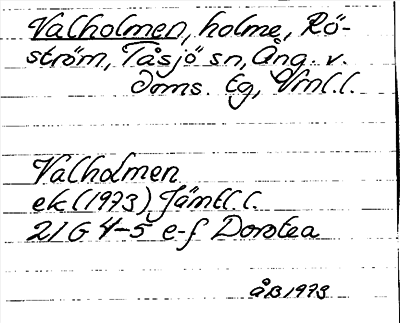 Valholmen, holme, Rö-
ström, Tåsjö sn, Ång. v.
doms. tg, Vrnl. l.
Valholmen
ek (1973) Jämtl. l.
21 G 4-5 e-f Dorotea
ÅB 1973